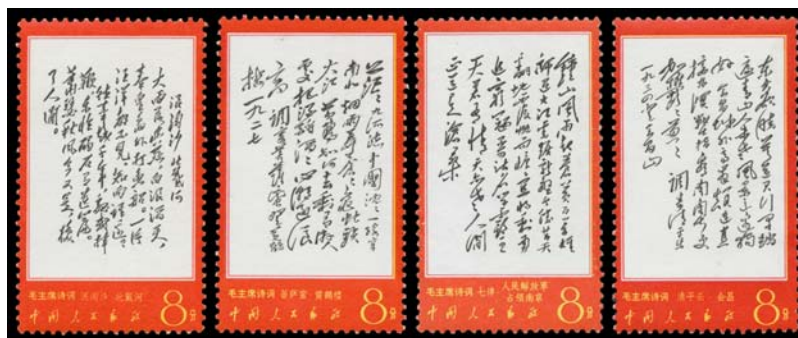 浪淘沙 北戴河
大雨落幽燕,白浪滔天,
秦皇岛外打鱼船。一片
汪洋都不见,知向谁边?
往事越千年,魏武挥
鞭,东临碣石有遗篇。
萧瑟秋风今又是,换
了人间。
毛主席诗词 浪淘沙 北戴河
中国人民邮政 8分
茫茫九派流中國沈沈一线穿
南北烟雨莽苍苍龟蛇锁
大江黄鹤知何去剩有游人
處把酒酹滔滔心潮逐浪
高 调寄菩萨蛮登黄鹤
楼 一九二七
毛主席诗词 菩萨蛮 黄鹤楼
中国人民邮政 8分
钟山风雨起苍黄百万雄
师过大江虎踞龙盘今胜昔天
翻地覆慨而慷宜将剩勇
追穷寇不可沽名学霸王
天若有情天亦老人间
正道是沧桑
毛主席诗词 七律 人民解放军占领南京
中国人民邮政 8分
东方欲晓莫道君行早踏
遍青山人未老风景这边独
好 会昌城外高峰颠连直
接东溟战士指看南粤更
加郁郁葱葱 调寄清平乐
一九三四
毛主席诗词 清平乐 会昌
中国人民邮政 8分